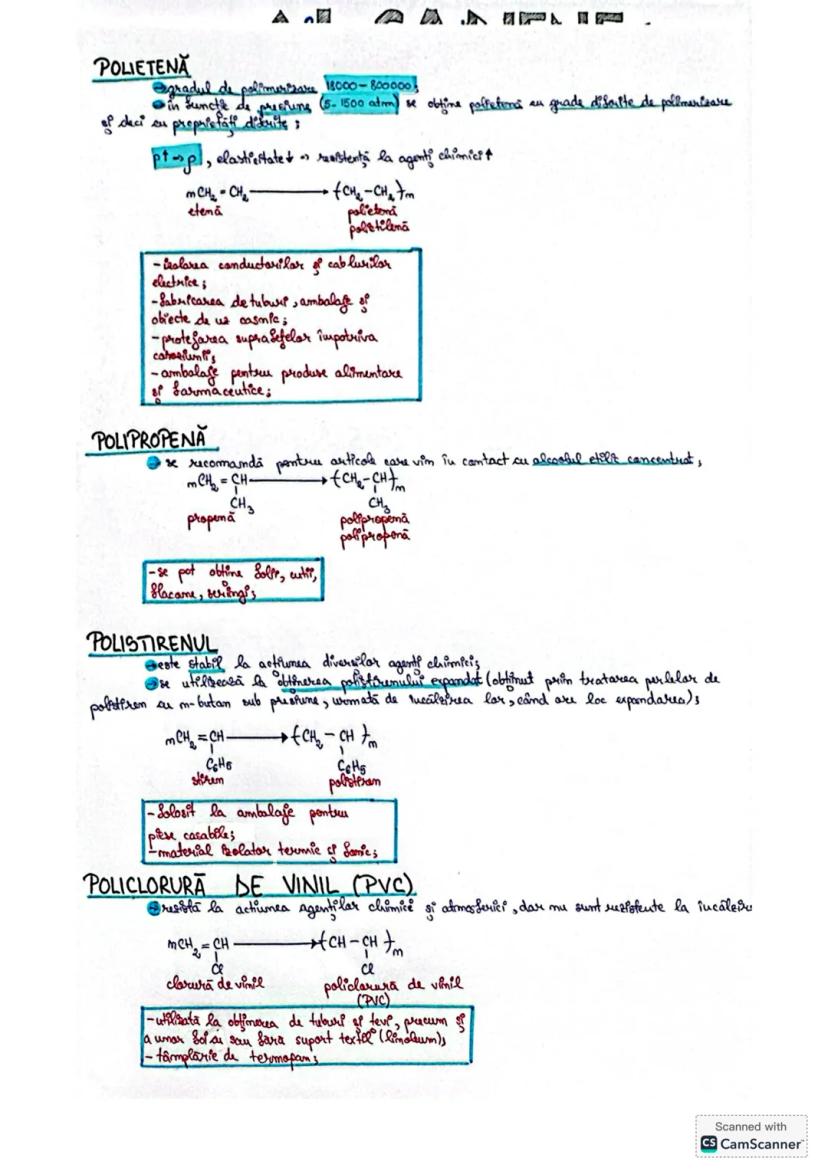 POLIETENĂ
gradul de polimerizare 18000-800000;
în funcție de presiune (5-1500 atm) se obține polietenă cu grade diferite de polimerizare
și deci cu proprietăți diferite;
p↑ => ρ↑, elasticitate↓ => rezistență la agenți chimici↑
nCH₂ = CH₂ → -(CH₂-CH₂)-n
etenă polietenă
polietilenă
-izolarea conductorilor și cablurilor
electrice;
-fabricarea de tuburi, ambalaje și
obiecte de uz casnic;
-protejarea suprafețelor împotriva
coroziunii;
-ambalaje pentru produse alimentare
și farmaceutice;
POLIPROPENĂ
se recomandă pentru articole care vin în contact cu alcoolul etilic concentrat;
nCH₂ = CH → -(CH₂-CH)-n
CH₃ CH₃
propenă polipropenă
polipropenă
-se pot obține folii, cutii,
flacoane, seringi;
POLISTIRENUL
este stabil la acțiunea diverșilor agenți chimici;
se utilizează la obținerea polistirenului expandat (obținut prin tratarea perlelor de
polistiren cu n-butan sub presiune, urmată de încălzirea lor, când are loc expandarea);
nCH₂ = CH → -(CH₂ - CH)-n
C₆H₅ C₆H₅
stiren polistiren
-folosit la ambalaje pentru
piese casabile;
-material izolator termic și fonic;
POLICLORURĂ DE VINIL (PVC)
rezistă la acțiunea agenților chimici și atmosferici, dar nu sunt rezistente la încălzire
nCH₂ = CH → -(CH - CH)-n
Cl Cl
clorură de vinil policlorură de vinil
(PVC)
-utilizată la obținerea de tuburi și țevi, precum și
a unor folii sau fără suport textil (linoleum);
-tâmplărie de termopan;
Scanned with
CS CamScanner